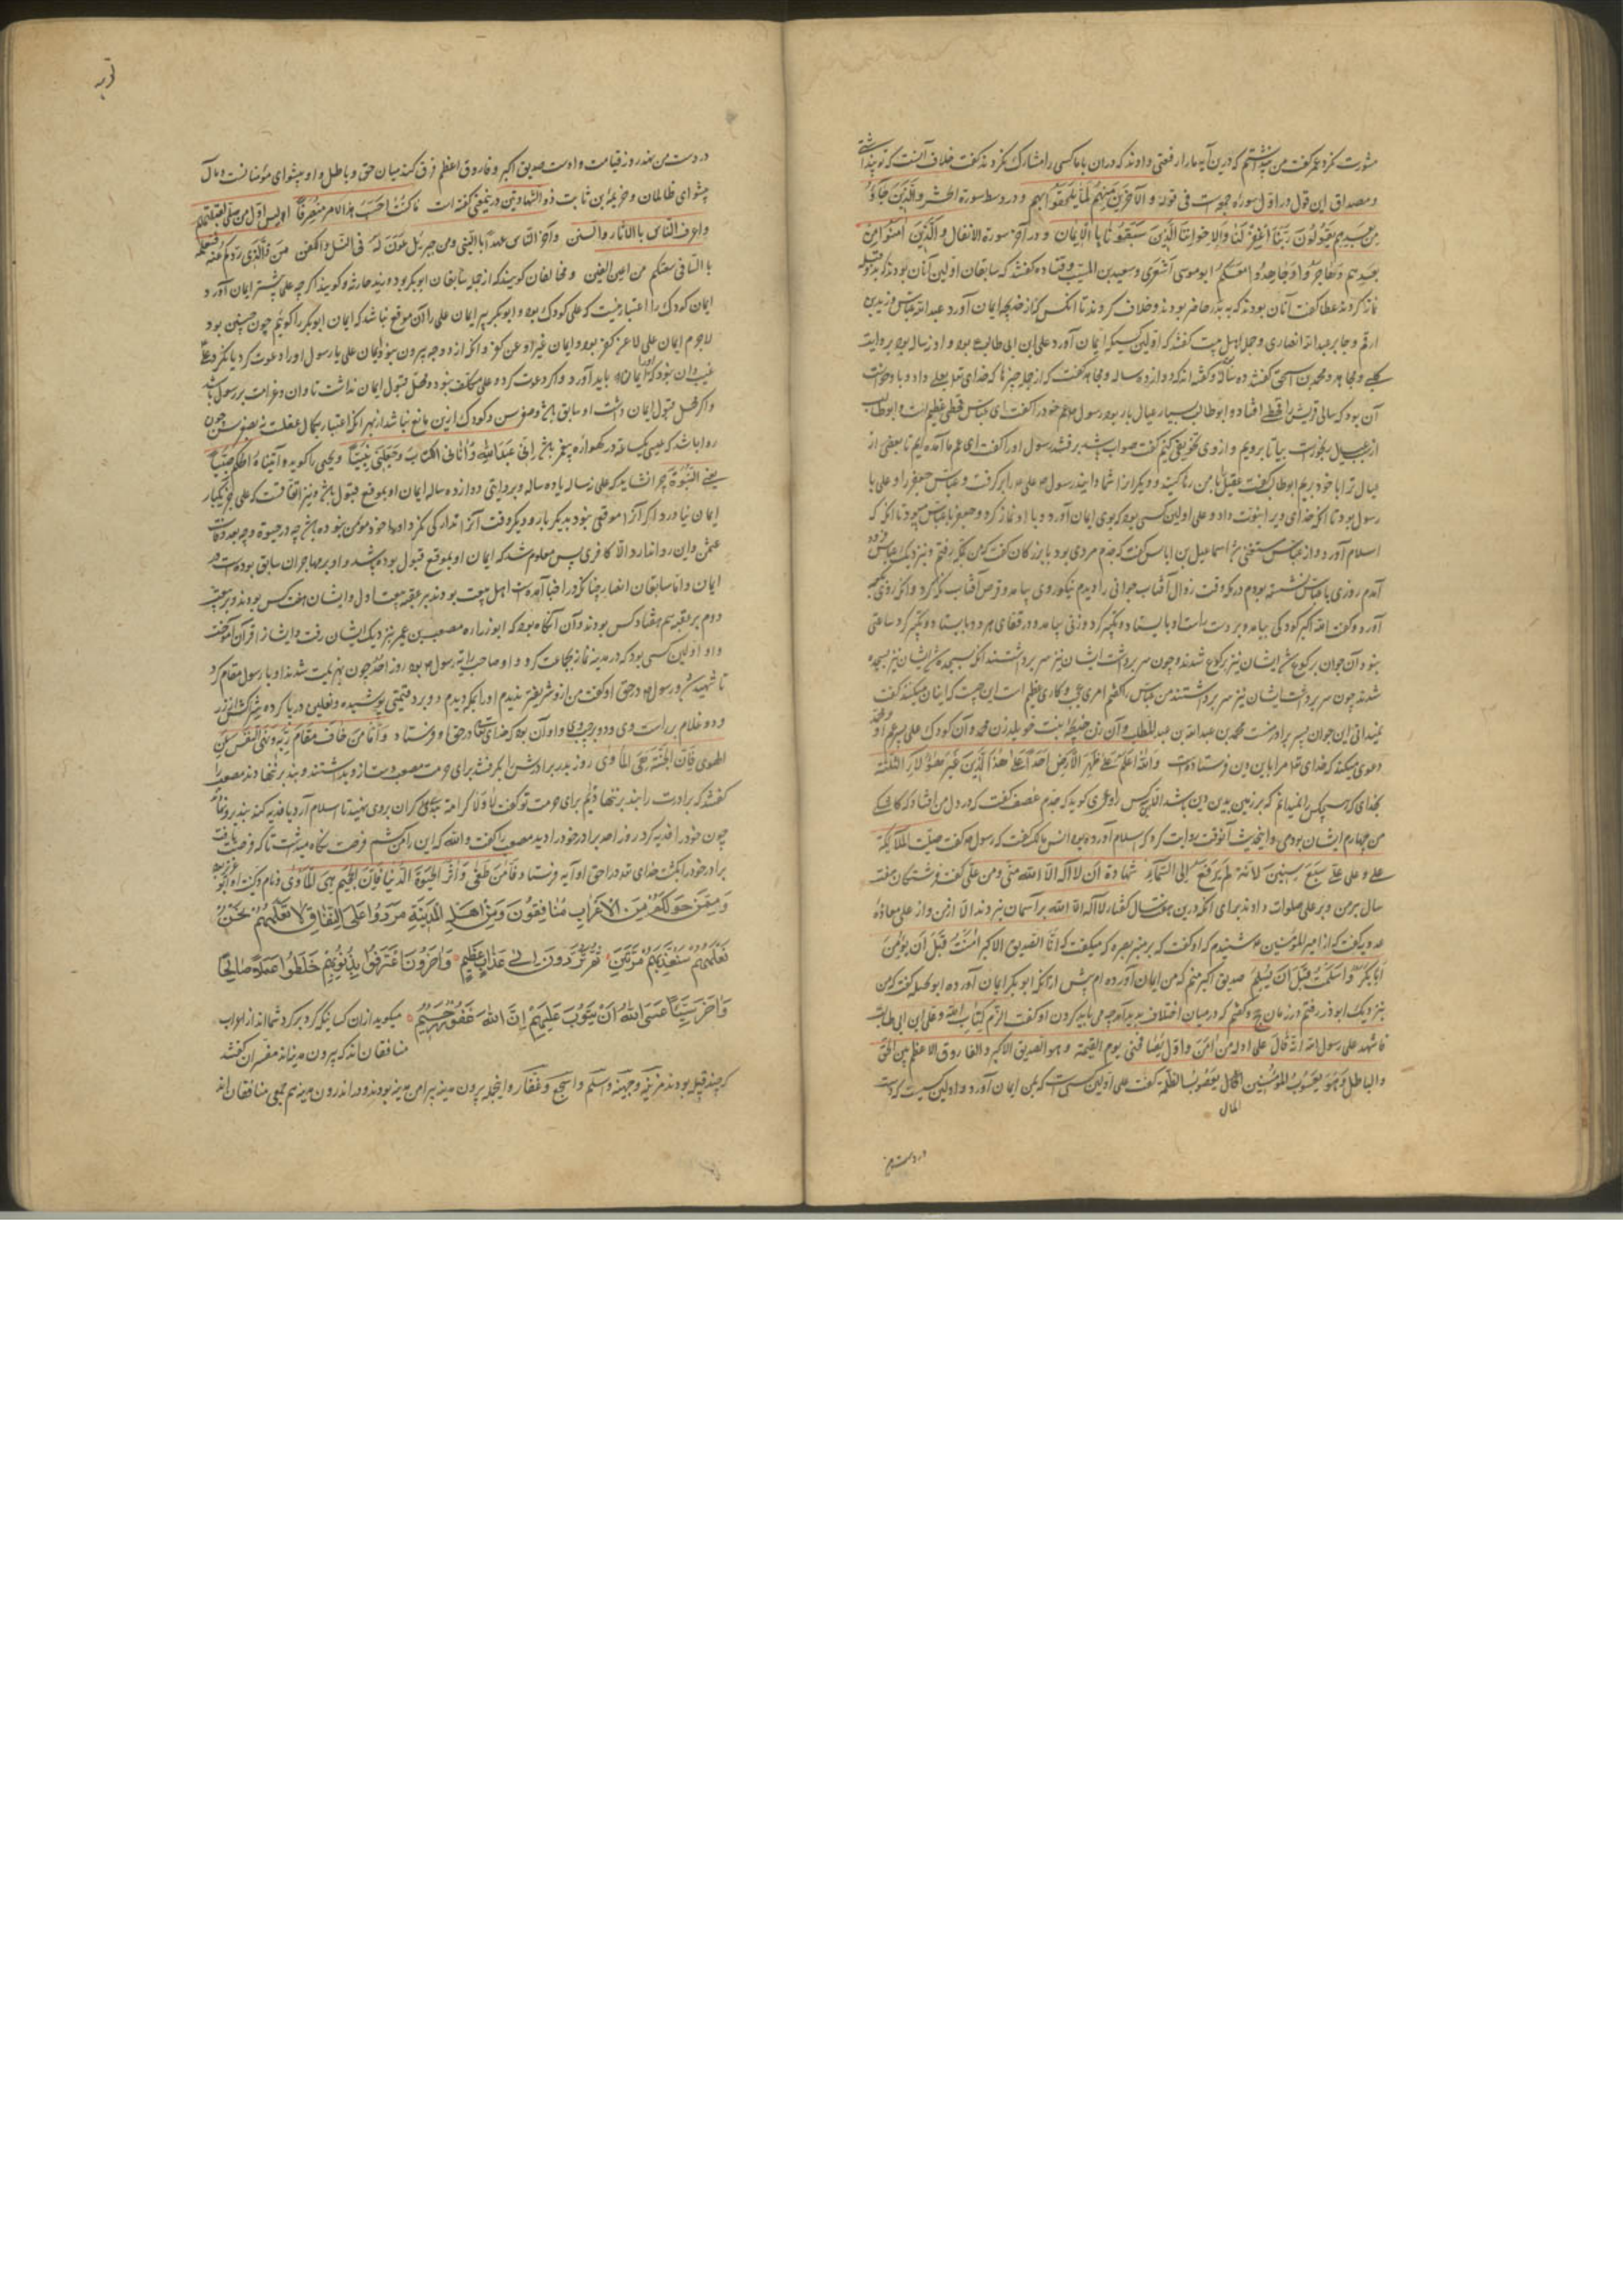 مشورت نکرد عمر گفت من پنداشتم که درین آیه ما را رفعتی دادند که دران با ما کسی را مشارک نکردند گفت خلاف آنست که تو پنداشتی
و مصداق این قول در اول سوره جمعه است فی قوله و آخرین منهم لما یلحقوا بهم و در وسط سورة الحشر و الذین جاؤا
من بعدهم یقولون ربنا اغفر لنا و لاخواننا الذین سبقونا بالایمان و در آخر سورة الانفال و الذین آمنوا من
بعد و هاجروا و جاهدوا معکم ابو موسی اشعری و سعید بن المسیب و قتاده گفتند که سابقان اولین آنان بودند که بدو قبله
نماز کردند عطا گفت آنان بودند که به بدر حاضر بودند و خلاف کردند تا آنکس که از خدیجه ایمان آورد عبد الله عباس و زید بن
ارقم و جابر عبد الله انصاری و جمل اهل بیت گفتند که اولین کسی که ایمان آورد علی ابن ابی طالب بود و او ده ساله بود بروایت
کلبی و مجاهد و محمد بن اسحق گفتند ده ساله و گفته اند که دوازده ساله و مجاهد گفت که از جمله چیزها که خدای تعالی بعلی داد و با و خواست
آن بود که سالی قریش را قحطی افتاد و ابو طالب بسیار عیال بار بود رسول عم خود را گفت ای عباس قحطی عظیم است و ابو طالب
از عیال رنجورست بیا تا برویم و از وی تخفیفی کنیم گفت صواب باشد برفتند رسول او را گفت ای عم ما آمده ایم تا بعضی از
عیال ترا با خود بریم ابو طالب گفت عقیل را بمن رها کنید و دیگران را شما دانید رسول علی را برگرفت و عباس جعفر را و علی با
رسول بود تا آنکه خدای ویرا نبوت داد و علی اولین کسی بود که بوی ایمان آورد و با او نماز کرد و جعفر با عباس می بود تا آنکه که
اسلام آورد و از عباس مستغنی شد اسماعیل بن ایاس گفت که جدم مردی بود بازرگان گفت که من بمکه رفتم و نزدیک عباس فرود
آمدم روزی با عباس نشسته بودم در مکه وقت زوال آفتاب جوانی را دیدم نیکو روی بیامد و قرص آفتاب نگه کرد و آنگه روی بکعبه
آورد و گفت الله اکبر کودکی بیامد و بر دست راست او بایستاد و تکبیر کرد و زنی بیامد و در قفای هر دو بایستاد و تکبیر کرد ساعتی
بنود آن جوان برکوع شد ایشان نیز برکوع شدند و چون سر برداشت ایشان نیز سر برداشتند آنگه بسجده شد ایشان نیز بسجده
شدند چون سر برداشت ایشان نیز سر برداشتند من عباس را گفتم امری عجب و کاری عظیم است این چیست که اینان میکنند گفت
نمیدانی این جوان پسر برادرمنست محمد بن عبد الله بن عبد المطلب و آن زن خدیجه بنت خویلد زن محمد و آن کودک علی پسر عم او و محمد
دعوی میکند که خدای تعالی مرا باین دین فرستاده است و الله اعلم علی ظهر الارض احدا علی هذا الدین غیر هؤلاء الثلثة
بخدای که هیچکس را نمیدانم که بر زمین بدین دین باشد الا این سه کس راوی گوید که جدم عفیف گفت که در دل من افتاد که کاشکی
من چهارم ایشان بودمی و این حدیث آنوقت روایت کرد که اسلام آورده بود انس مالک گفت که رسول گفت صلت الملائکة
علی و علی علی سبع سنین لانه لم یرفع الی السماء شهادة ان لا اله الا الله منی و من علی گفت فرشتگان هفت
سال بر من و بر علی صلوات دادند برای آنکه درین هفت سال گفتار لا اله الا الله بر آسمان نبردند الا از من و از علی معاذه
عدویه گفت که از امیر المؤمنین شنیدم که او گفت که بر منبر بصره که میگفت که انا الصدیق الاکبر آمنت قبل ان یؤمن
ابا بکر و اسلمت قبل ان یسلم صدیق اکبر منم که من ایمان آورده ام پیش از آنکه ابو بکر ایمان آورده ابو سخیله گفت که من
بنزدیک ابو ذر رفتم در زمان حج و گفتم که در میان اختلاف پدید آمد چه می باید کردن او گفت الزم کتاب الله و علی ابن ابی طالب
فاشهد علی رسول الله انه قال علی اول من آمن و اول یصافحنی یوم القیمة و هو الصدیق الاکبر و الفاروق الاعظم بین الحق
و الباطل و هو یعسوب المؤمنین و المال یعسوب الظلمة گفت علی اولین کسی است که بمن ایمان آورد و اولین کسیست که دست
المال
در دست من
در دست من نهد روز قیامت و اوست صدیق اکبر و فاروق اعظم فرق کند میان حق و باطل و او پیشوای مؤمنانست و مال
پیشوای ظالمان و خزیمة ابن ثابت ذو الشهادتین در ین معنی گفته است ما کنت احسب هذا الامر منصرفا الیس اول من صلی لقبلتکم
و اعرف الناس بالآثار و السنن و آخر الناس عهدا بالنبی و من جبریل عون له فی الغسل و الکفن من ذا الذی ردکم عنه فنعلمه
با التنافی بیعتکم من اعین الغبن و مخالفان گویند که از جمله سابقان ابو بکر بود و زید حارثه و گویند اگر چه علی پیشتر ایمان آورد
ایمان کودک را اعتبار نیست که علی کودک بود و ابو بکر پیر ایمان علی را آن موقع نباشد که ایمان ابو بکر را گوئیم چون چنین بود
لاجرم ایمان علی لا عن کفر بود و ایمان غیر او عن کفر و آنکه از دو وجه بیرون نبود ایمان علی یا رسول او را دعوت کرد یا نکرد
و اگر محل قبول ایمان داشت او سابق باشد و صغر سن و کودک ازین مانع نباشد از بهر آنکه اعتبار بکمال عقلست نه بصغر سن چون
روا باشد که عیسی یک ساعته در گهواره پیغمبر باشد انی عبد الله و آتانی الکتاب و جعلنی نبیا و یحیی را گوید و آتیناه الحکم صبیا
یعنی النبوة چرا نشاید که علی نه ساله یا ده ساله و بروایتی دوازده ساله ایمان او بموقع قبول باشد و نیز اتفاقست که علی جز یکبار
ایمان نیاورد اگر آنرا موقعی نبود بدیگر بار و دیگر وقت آنرا تدارکی نکرد
ایمان و اما سابقان انصار چنانکه در اخبار آمده است اهل بیعت بودند بر عقبه بیعت اول و ایشان هفت کس بودند و بر بیعت
دوم بر عقبه هم هفتاد کس بودند و آن آنگاه بود که ابو زراره مصعب بن عمیر بنزدیک ایشان رفت و ایشان را قرآن آموخت
و او اولین کسی بود که در مدینه نماز بجماعت کرد و او صاحب رایه رسول بود روز احد چون بهزیمت شدند او با رسول مقام کرد
تا شهید شد و رسول در حق او گفت من ازو شریفتر ندیدم او را بمکه دیدم دو برد قیمتی پوشیده و نعلین در پا کرده شراکش از زر
و دو غلام بر راست وی و دو بر چپ وی و او آن بود که خدای تعالی در حق او فرستاد و اما من خاف مقام ربه و نهی النفس عن
الهوی فان الجنة هی المأوی روز بدر برادرش را بگرفتند برای حرمت مصعب دست ازو بداشتند و بند بر ننهادند مصعب را
گفتند که برادرت را بند بر ننهادیم برای حرمت تو گفت لا و لا کرامة بندی گران بروی نهید تا اسلام آرد یا فدیه کند
چون خود را فدیه کرد روز احد برادر خود را دید مصعب را گفت و الله که این را من کشم فرصت نگاه میداشت تا که فرصت یافت
برادر خود را بکشت خدای تعالی در حق او آیه فرستاد فاما من طغی و آثر الحیوة الدنیا فان الجحیم هی المأوی
و ممن حولکم من الاعراب منافقون و من اهل المدینة مردوا علی النفاق لا تعلمهم نحن
نعلمهم سنعذبهم مرتین ثم یردون الی عذاب عظیم و آخرون اعترفوا بذنوبهم خلطوا عملا صالحا
و آخر سیئا عسی الله ان یتوب علیهم ان الله غفور رحیم میگوید از آن کسانیکه گرد بر گرد شما اند از اعراب
منافقان اند که بیرون مدینه اند مفسران گفتند
که چند قبیله بودند مزینه و جهینه و اسلم و اشجع و غفار و اینجمله بیرون مدینه پیرامن مدینه بودند و در اندرون مدینه هم جمعی منافقان اند